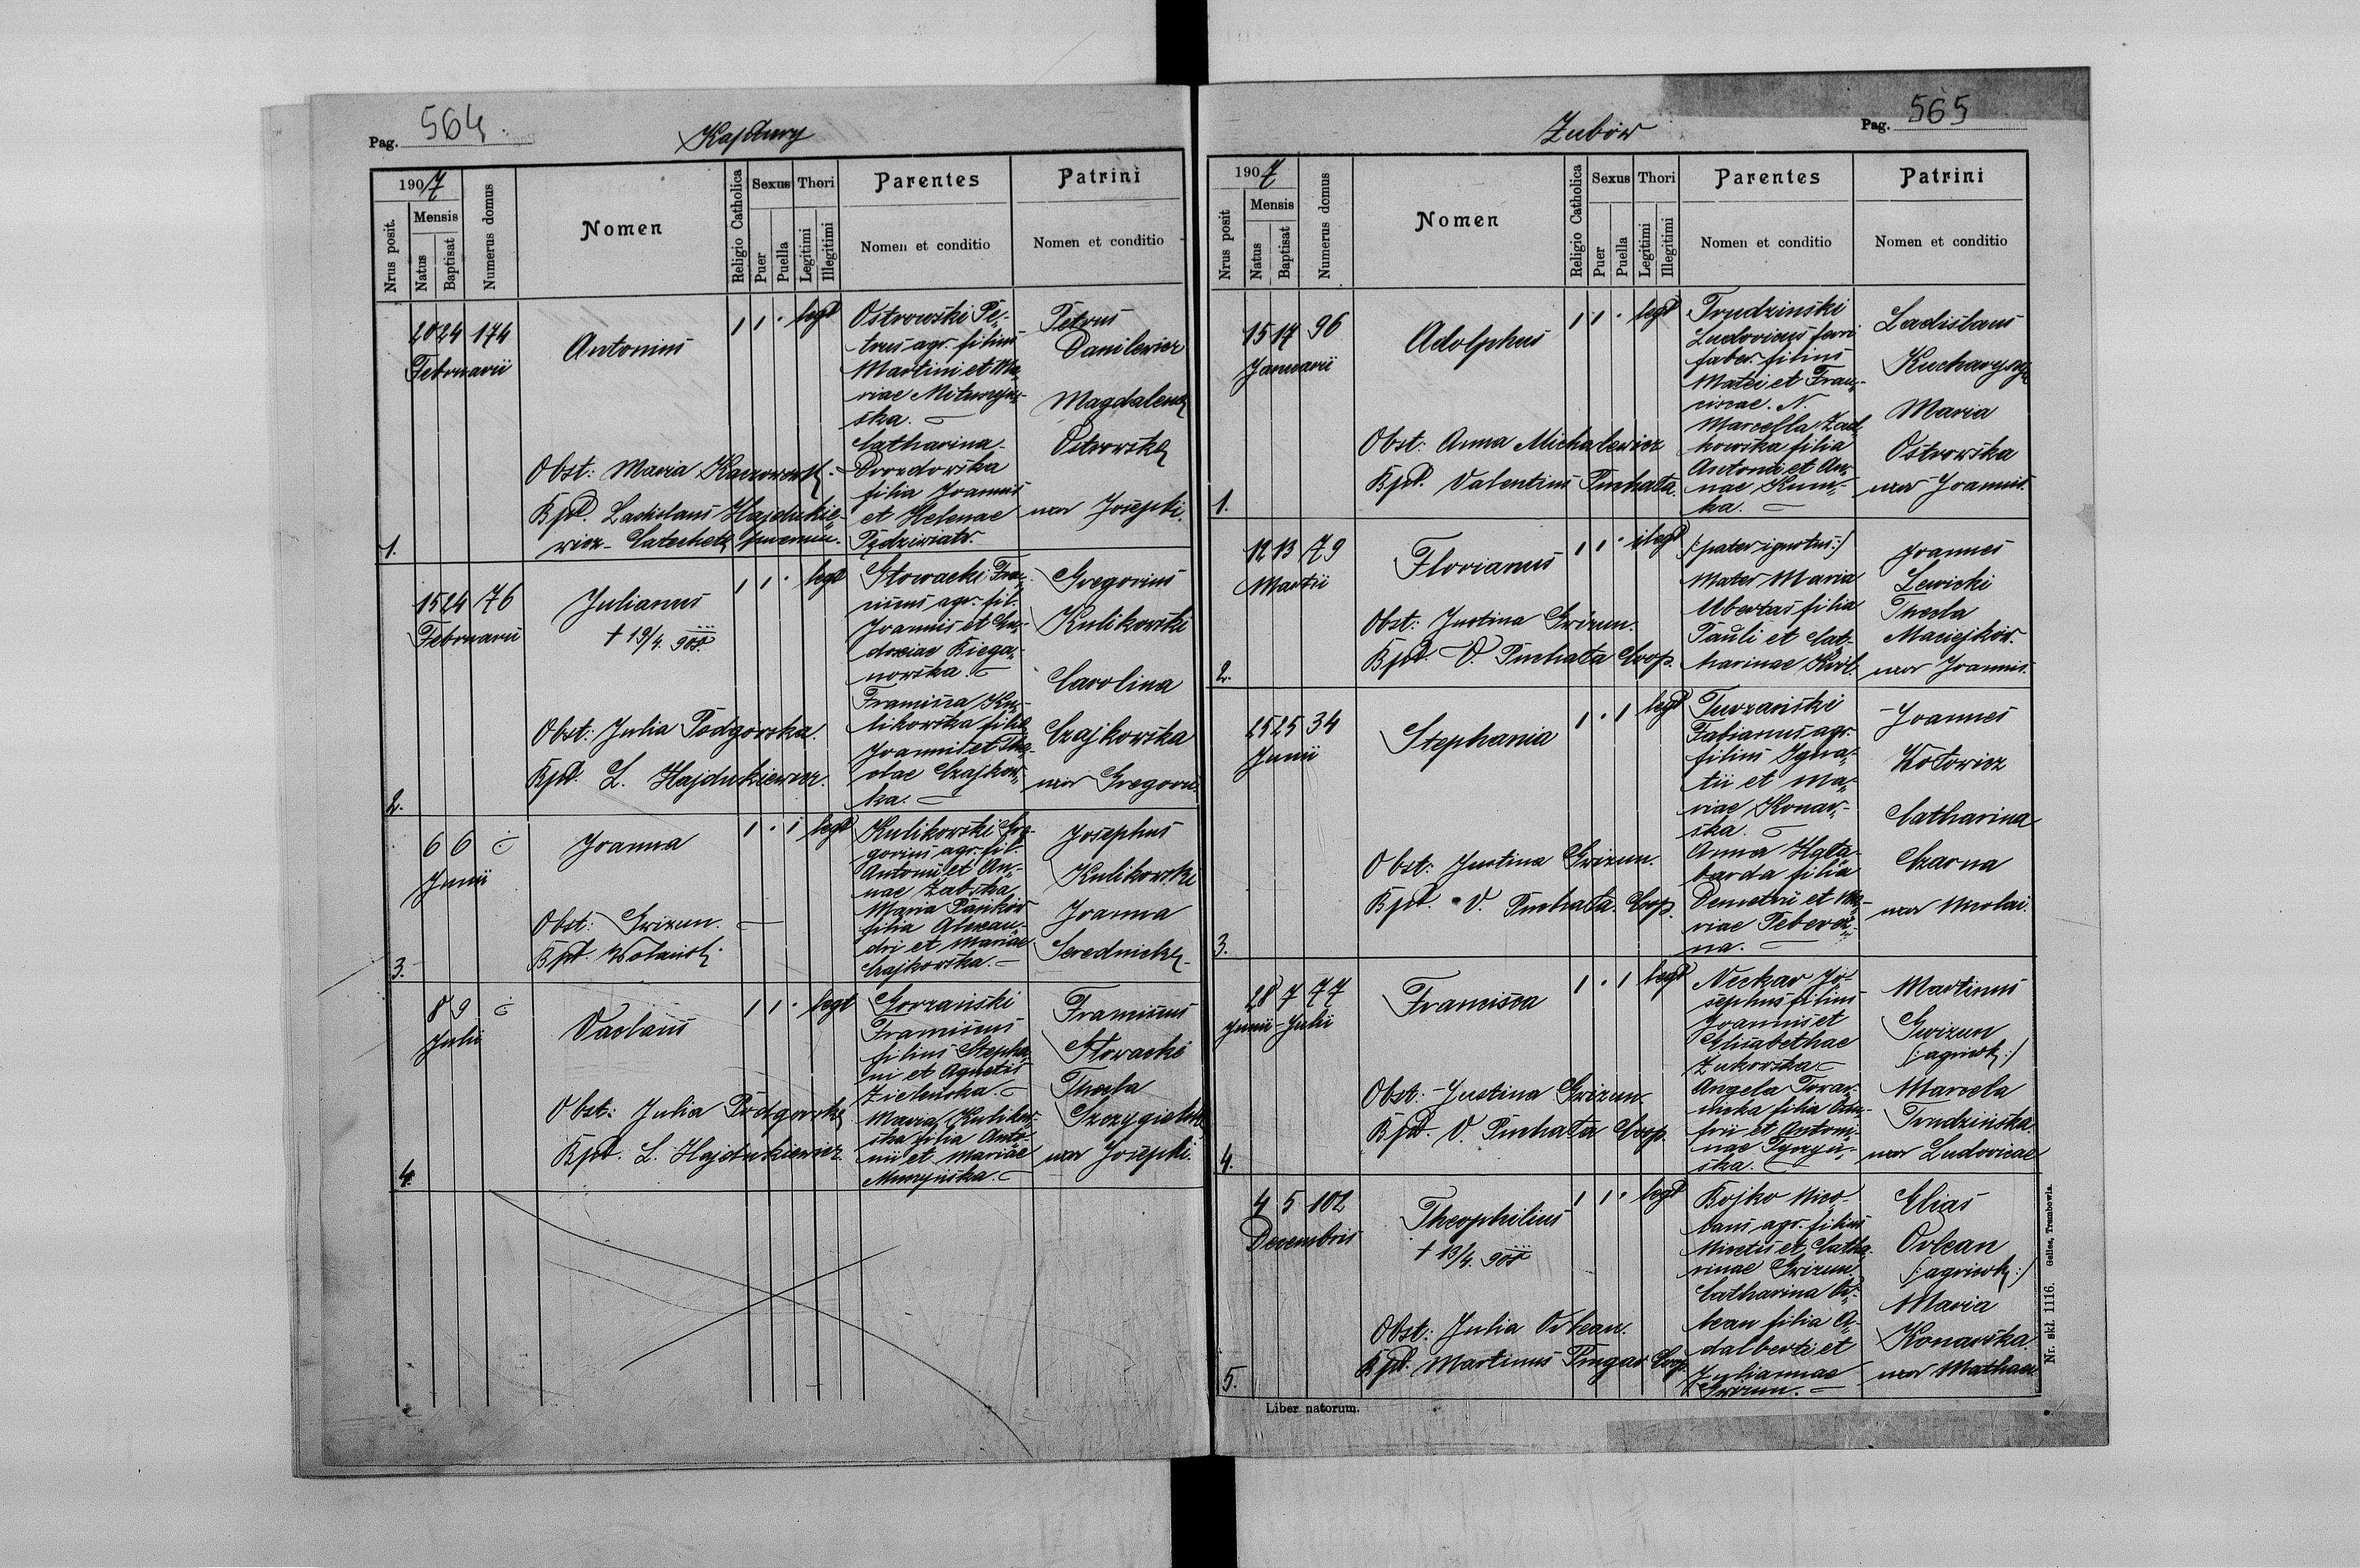 Pag. 564
Kajdany
1907
Nrus posit.
Mensis
Natus
Baptisat
Numerus domus
Nomen
Religio Catholica
Sexus
Puer
Puella
Thori
Legitimi
Illegitimi
Parentes
Nomen et conditio
Patrini
Nomen et conditio
1.
20 24 174
Februarii
Antonius
Obst: Maria
Bpt. Ladislaus Hajdukie-
wicz - Catecheta
1 1 · legt
Ostrowski Pe-
trus agr. filius
Martini et Ma-
riae
ska.
Catharina
Drozdowska
filia Joannis
et Helenae
Pędziwiatr.
Petrus
Danilewicz
Magdalena
Ostrowska
uxor Josephi.
2.
15 24 76
Februarii
Julianus
† 19/4. 908
Obst: Julia Podgórska.
Bpt. L. Hajdukiewicz.
1 1 · legt
Głowacki Fran-
ciscus agr. fil.
Joannis et Eu-
doxiae Biega-
nowska.
Francisca Ku-
likowska filia
Joannis et The-
clae Czajkow-
ka.
Gregorius
Kulikowski
Carolina
Czajkowska
uxor Gregorii.
3.
6 6
Junii
Joanna
Obst: Grizun.
Bpt. Wolański.
1 · 1 legt
Kulikowski Gre-
gorius agr. fil.
Antonii et An-
nae Żabska
Maria
filia Alexan-
dri et Mariae
Czajkowska.
Josephus
Kulikowski
Joanna
Serednicka
4.
8 9
Julii
Vaclaus
Obst: Julia Podgorska
Bpt. L. Hajdukiewicz.
1 1 · legt
Gorzański
Franciscus
filius Stepha-
ni et Agnetis
Zielenska.
Maria Kulikow-
ska filia Anto-
nii et Mariae
Muczyńska.
Franciscus
Głowacki
Thecla
uxor Josephi.
Pag. 565
Zubów
1907
Nrus posit
Mensis
Natus
Baptisat
Numerus domus
Nomen
Religio Catholica
Sexus
Puer
Puella
Thori
Legitimi
Illegitimi
Parentes
Nomen et conditio
Patrini
Nomen et conditio
1.
15 17 96
Januarii
Adolphus
Obst: Anna Michalewicz
Bpt. Valentius Puchała.
1 1 · legt
Trudzinski
Ludovicus ferri
faber filius
Matei et Fran-
ciscae. N.
Marcella
kowska filia
Antonii et An-
nae
ka.
Ladislaus
Maria
Ostrowska
uxor Joannis.
2.
12 13 79
Martii
Florianus
Obst: Justina Grizun.
Bpt. V. Puchała Coop.
1 1 · ilegt
(:pater ignotus:)
Mater Maria
Ubertas filia
Pauli et Cat-
harinae Król.
Joannes
Lewicki
Thecla
Maciejków.
uxor Joannis.
3.
25 25 34
Junii
Stephania
Obst: Justina Grizun.
Bpt. V. Puchała. Coop.
1 · 1 legt
Turzański
Fabianus agr.
filius Igna-
tii et Ma-
riae Konar-
ska.
Anna Hała-
barda filia
Demetrii et Ma-
riae
na.
Joannes
Kotowicz
Catharina
Czarna
uxor Nicolai.
4.
28 7 77
Junii - Julii
Francisca
Obst: Justina Grizun.
Bpt. V. Puchała Coop.
1 · 1 legt
Neckar Jo-
sephus filius
Joannis et
Elisabethae
Żukowska
Angela Towar-
nicka filia
et Antoni-
nae
ska.
Martinus
Grizun
(:agricola:)
Marcela
Trudzińska
uxor Ludovicae
5.
4 5 102
Decembris
Theophilius
† 13/4. 908
Obst: Julia Orlean.
Bpt. Martinus Coop.
1 1 · legt
Bojko Nico-
laus agr. filius
et Catha-
rinae Grizun.
Catharina Or-
lean filia A-
dalberti et
Juliannae
Grizun.
Elias
Orlean
(:agricola:)
Maria
Konarska.
uxor Mathaei
Liber natorum.
Nr. skł. 1116. Gelles, Trembowla.